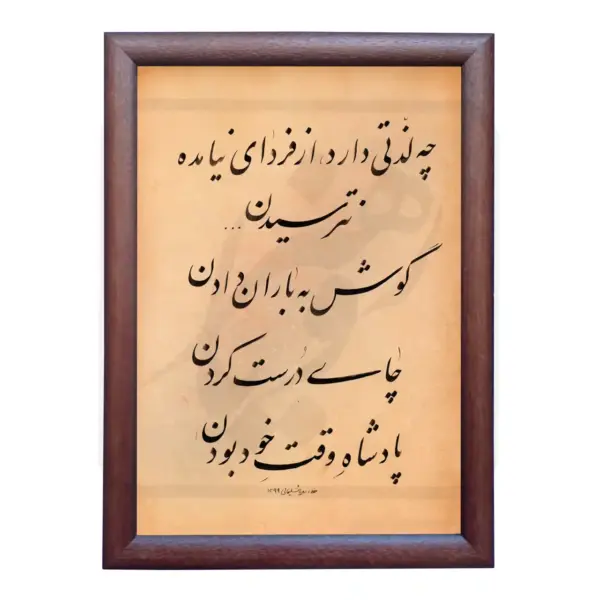 چه لذّتی دارد، از فردای نیامده
نترسیدن...
گوش به باران دادن
چاے درست کردن
پادشاهِ وقتِ خود بودن
۱۳۹۹